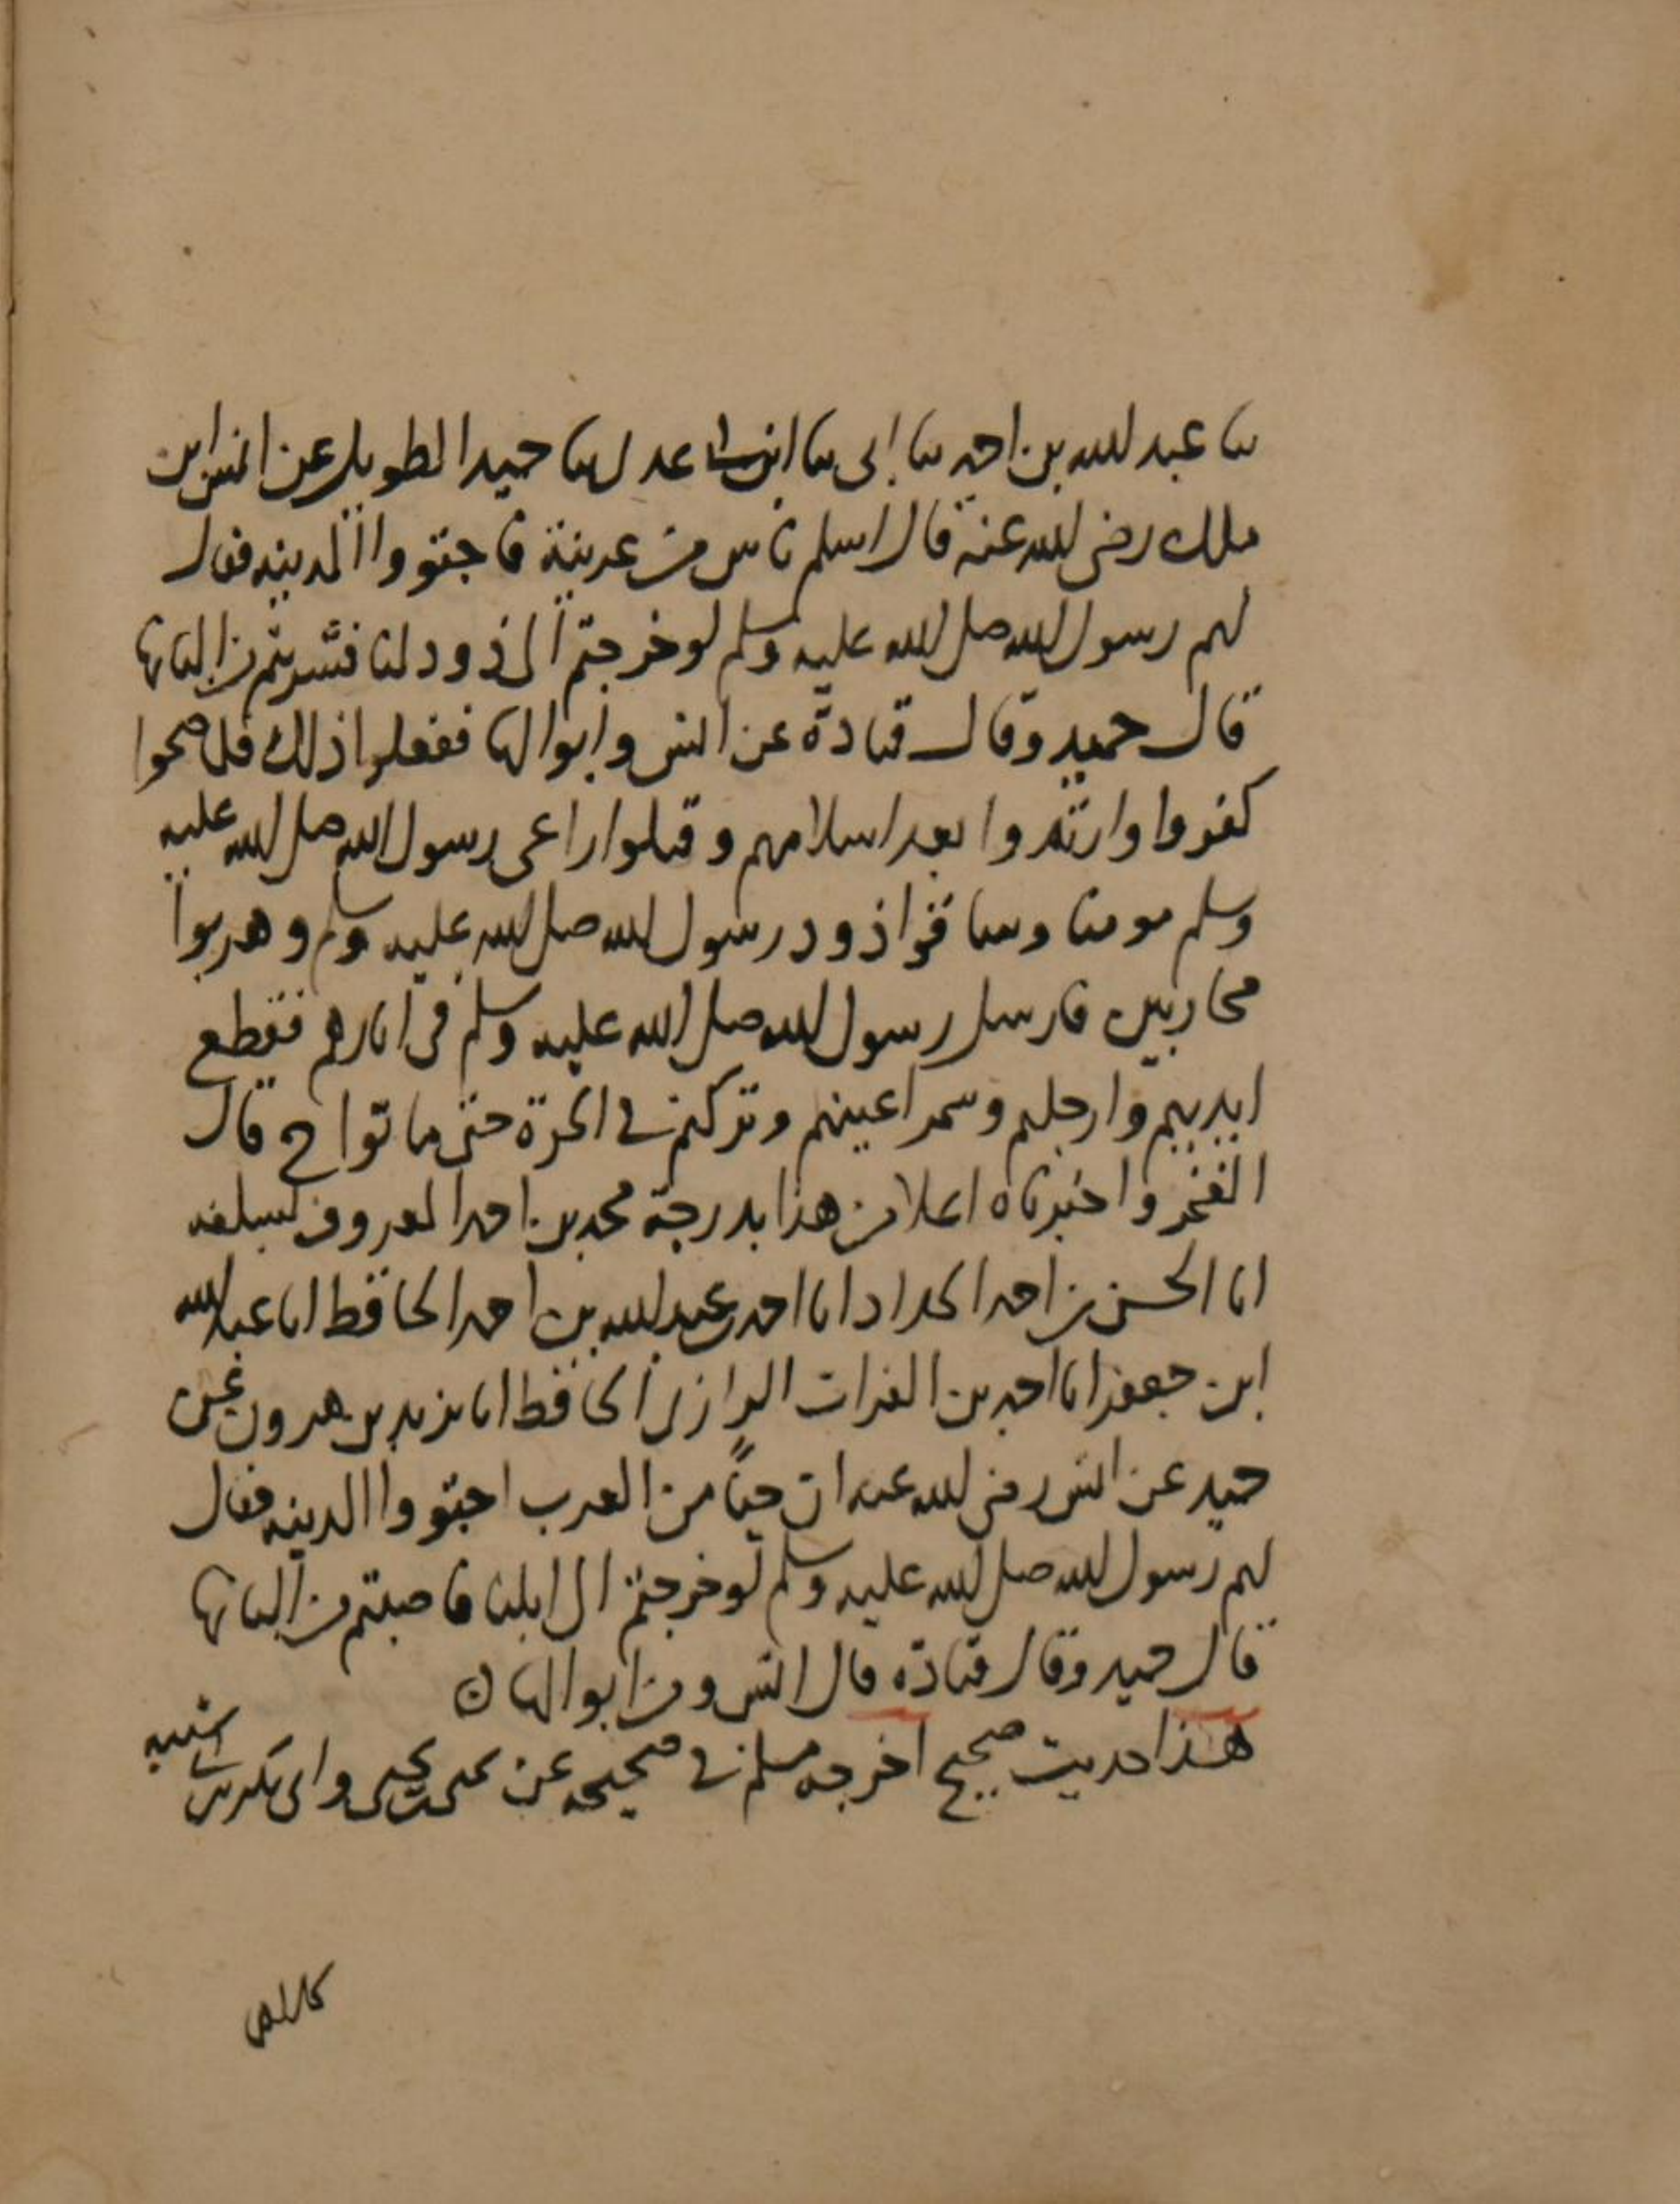 ثنا عبد الله بن احمد ثنا ابى ثنا ابن ابى عدى ثنا حميد الطويل عن انس ابن
ملك رضى الله عنه قال اسلم ناس من عرينة فاجتووا المدينه فقال
لهم رسول الله صلى الله عليه وسلم لو خرجتم الى ذود لنا فشربتم من البانها
قال حميد وقال قتادة عن انس وابوالها ففعلوا ذلك فلما صحوا
كفروا وارتدوا بعد اسلامهم وقتلوا راعى رسول الله صلى الله عليه
وسلم مومنا وساقوا ذود رسول الله صلى الله عليه وسلم وهربوا
محاربين فارسل رسول الله صلى الله عليه وسلم فى اثارهم فقطع
ايديهم وارجلهم وسمر اعينهم وتركهم فى الحرة حتى ماتوا ح قال
الفخر واخبرناه اعلا من هذا بدرجة محمد بن احمد المعروف بسلفه
انا الحسن بن احمد الحداد انا احمد بن عبد الله بن احمد الحافظ انا عبد الله
ابن جعفر انا احمد بن الفرات الرازى الحافظ انا يزيد بن هرون عن
حميد عن انس رضى الله عنه ان حيًا من العرب اجتووا المدينه فقال
لهم رسول الله صلى الله عليه وسلم لو خرجتم الى ابلنا فاصبتم من البانها
قال حميد وقال قتادة قال انس ومن ابوالها ن
هذا حديث صحيح اخرجه مسلم فى صحيحه عن يحيى بن يحيى وابى بكر بن ابى شيبه